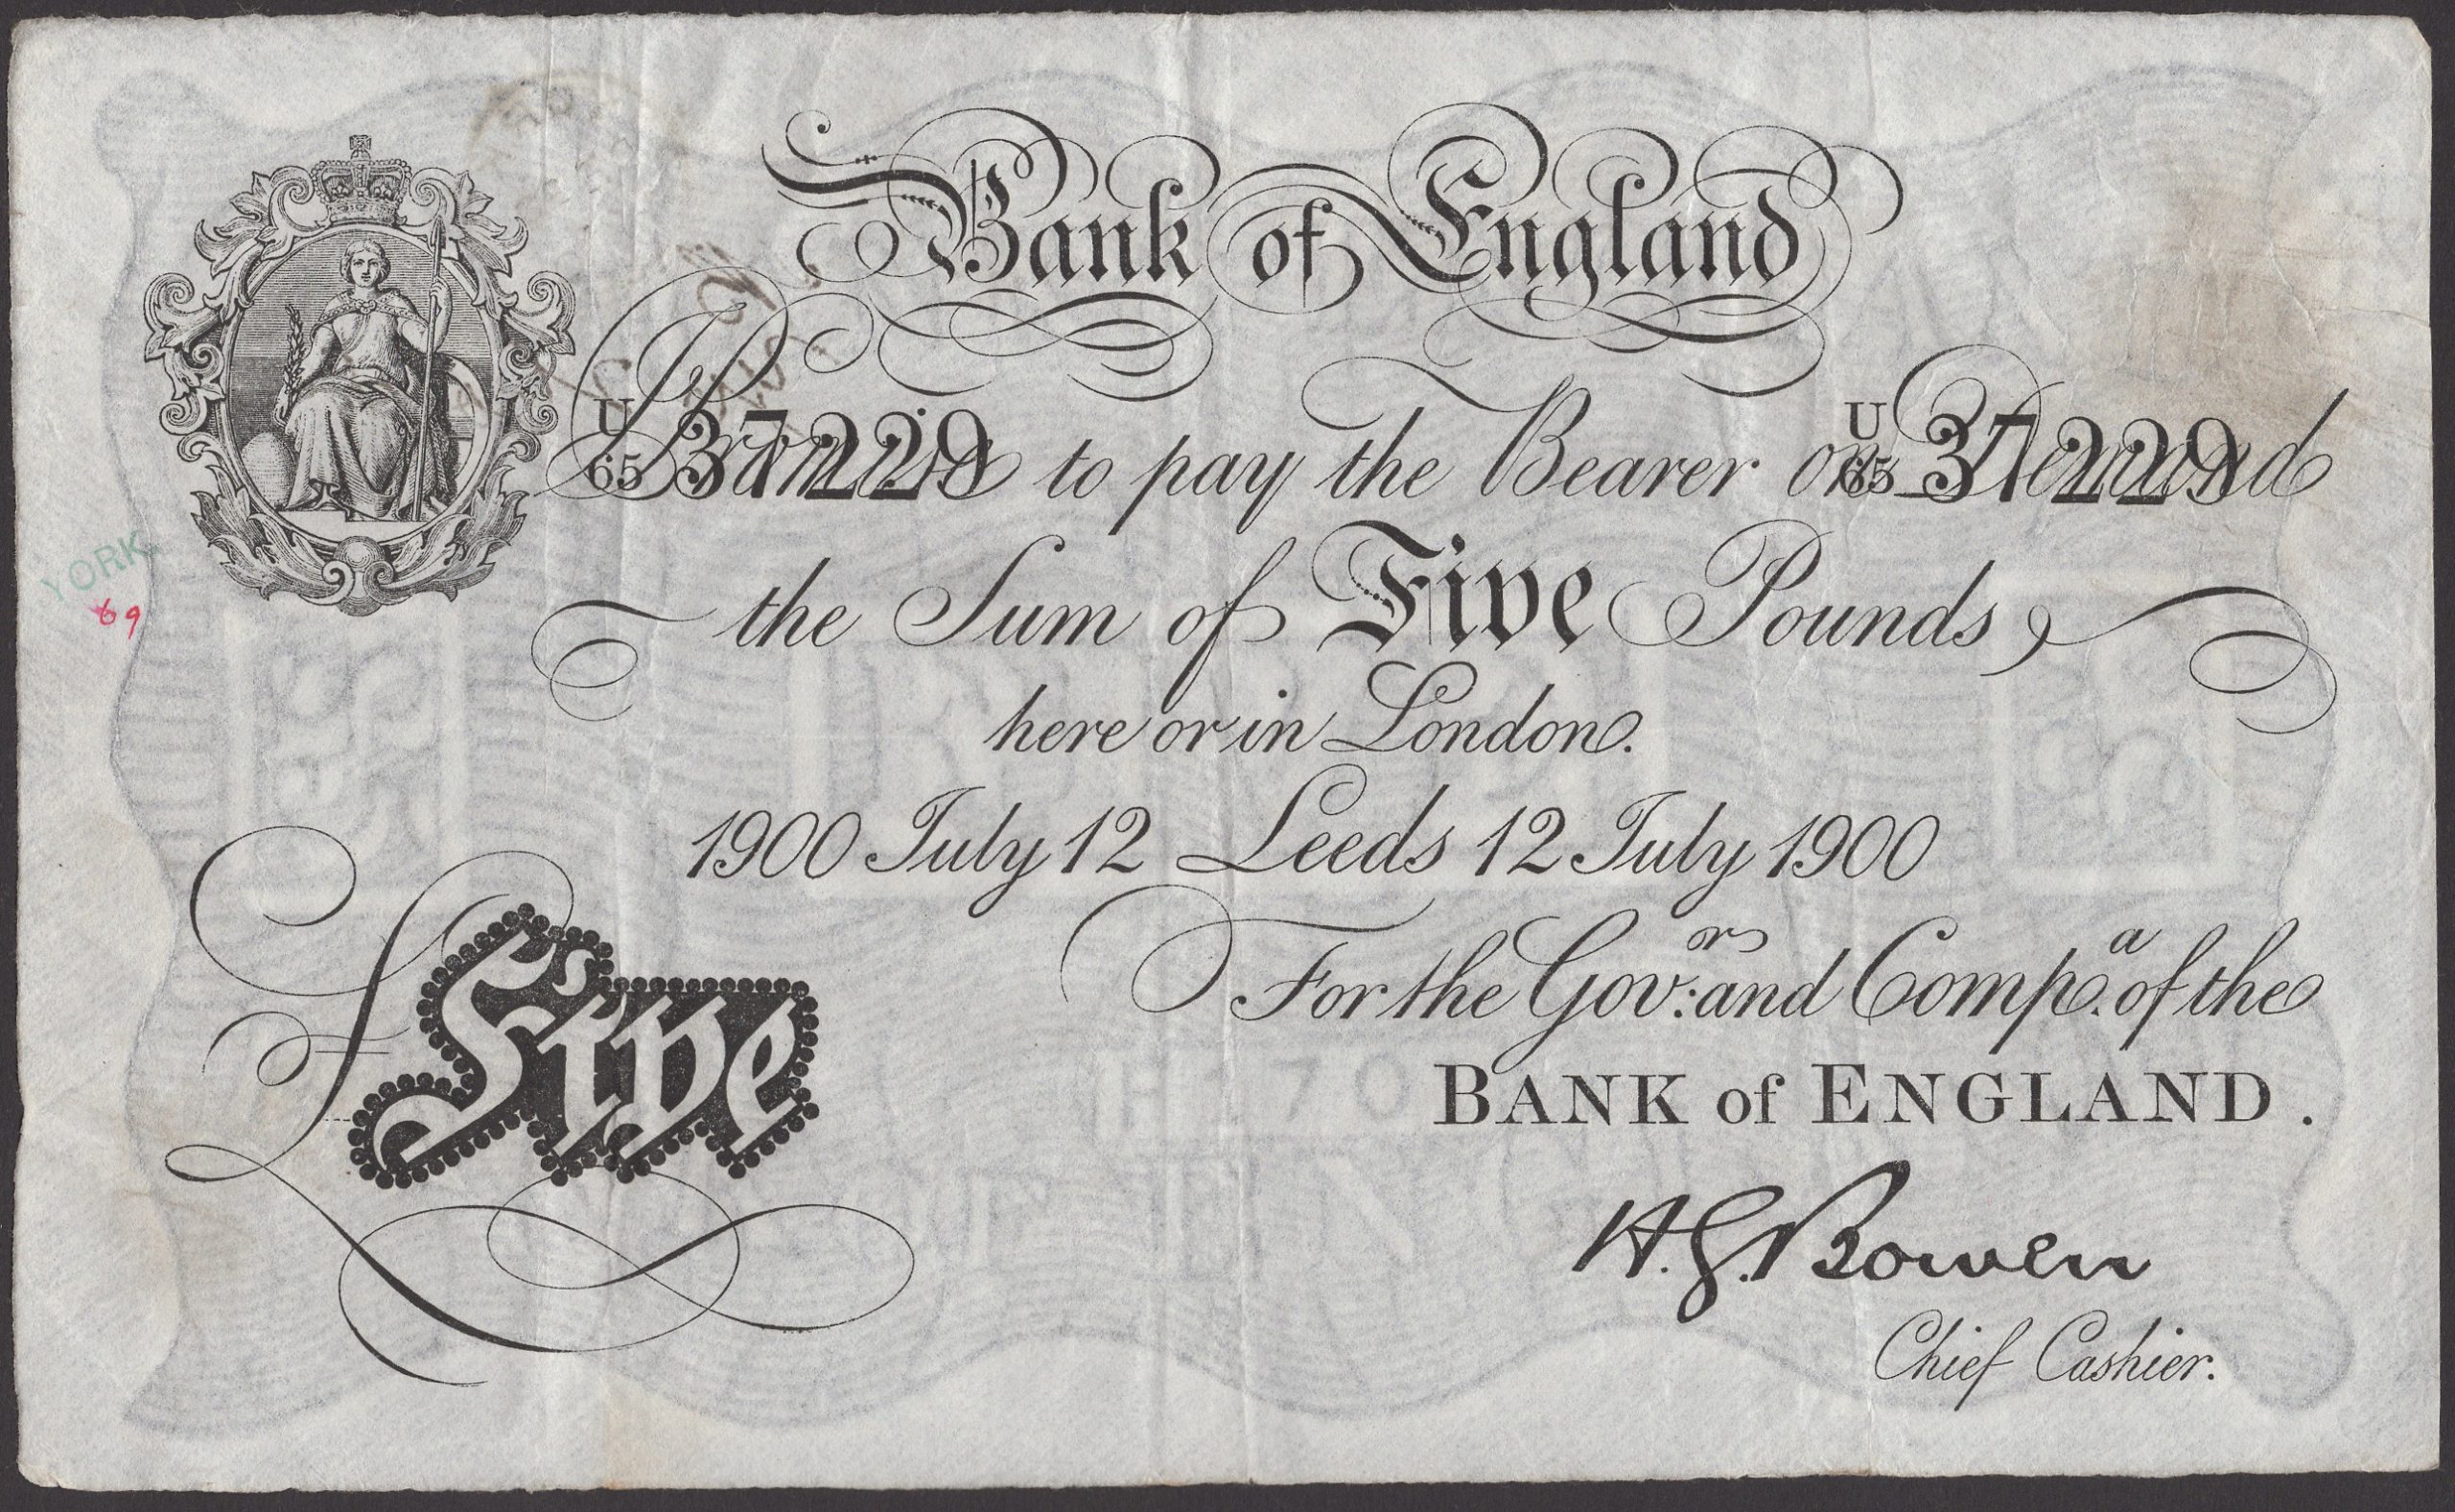 Bank of England
U 65 37229 U 65 37229
I Promise to pay the Bearer on Demand
the Sum of Five Pounds,
here or in London.
1900 July 12 Leeds 12 July 1900
For the Gov:r and Comp.a of the
BANK of ENGLAND.
£ Five
H.G. Bowen
Chief Cashier.
YORK
69